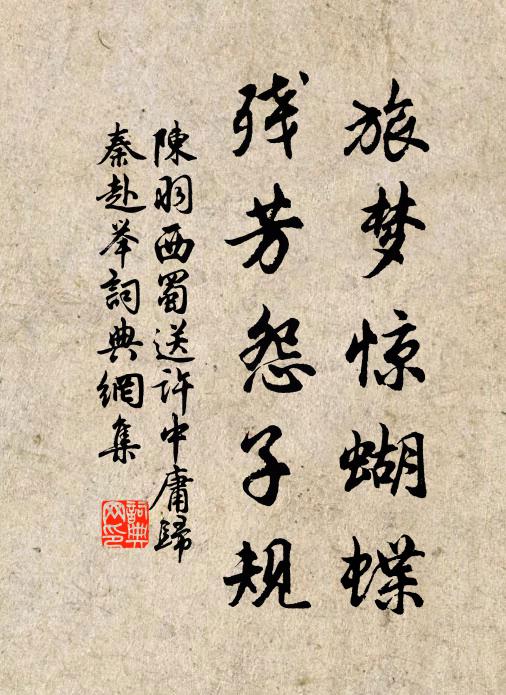 旅梦惊蝴蝶
残芳怨子规
陳羽西蜀送許中庸歸
秦赴举詞典網集
詞典
网印